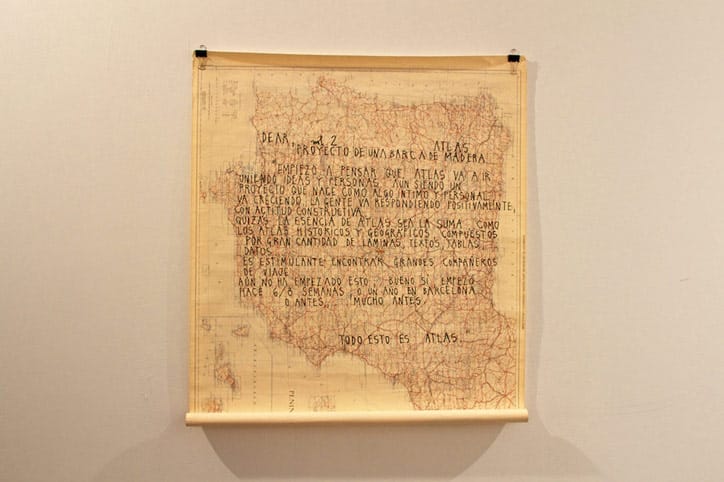 DEAR, nº 2 ATLAS
"PROYECTO DE UNA BARCA DE MADERA
"EMPIEZO A PENSAR QUE ATLAS VA A IR
UNIENDO IDEAS Y PERSONAS, AUN SIENDO UN
PROYECTO QUE NACE COMO ALGO INTIMO Y PERSONAL
VA CRECIENDO, LA GENTE VA RESPONDIENDO POSITIVAMENTE,
CON ACTITUD CONSTRUCTIVA
QUIZÁS LA ESENCIA DE ATLAS SEA LA SUMA, COMO
LOS ATLAS HISTORICOS Y GEOGRÁFICOS COMPUESTOS
POR GRAN CANTIDAD DE LÁMINAS, TEXTOS, TABLAS
DATOS
ES ESTIMULANTE ENCONTRAR GRANDES COMPAÑEROS
DE VIAJE
AÚN NO HA EMPEZADO ESTO, BUENO SI, EMPEZÓ
HACE 6/8 SEMANAS, O UN AÑO EN BARCELONA
O ANTES, MUCHO ANTES
TODO ESTO ES ATLAS